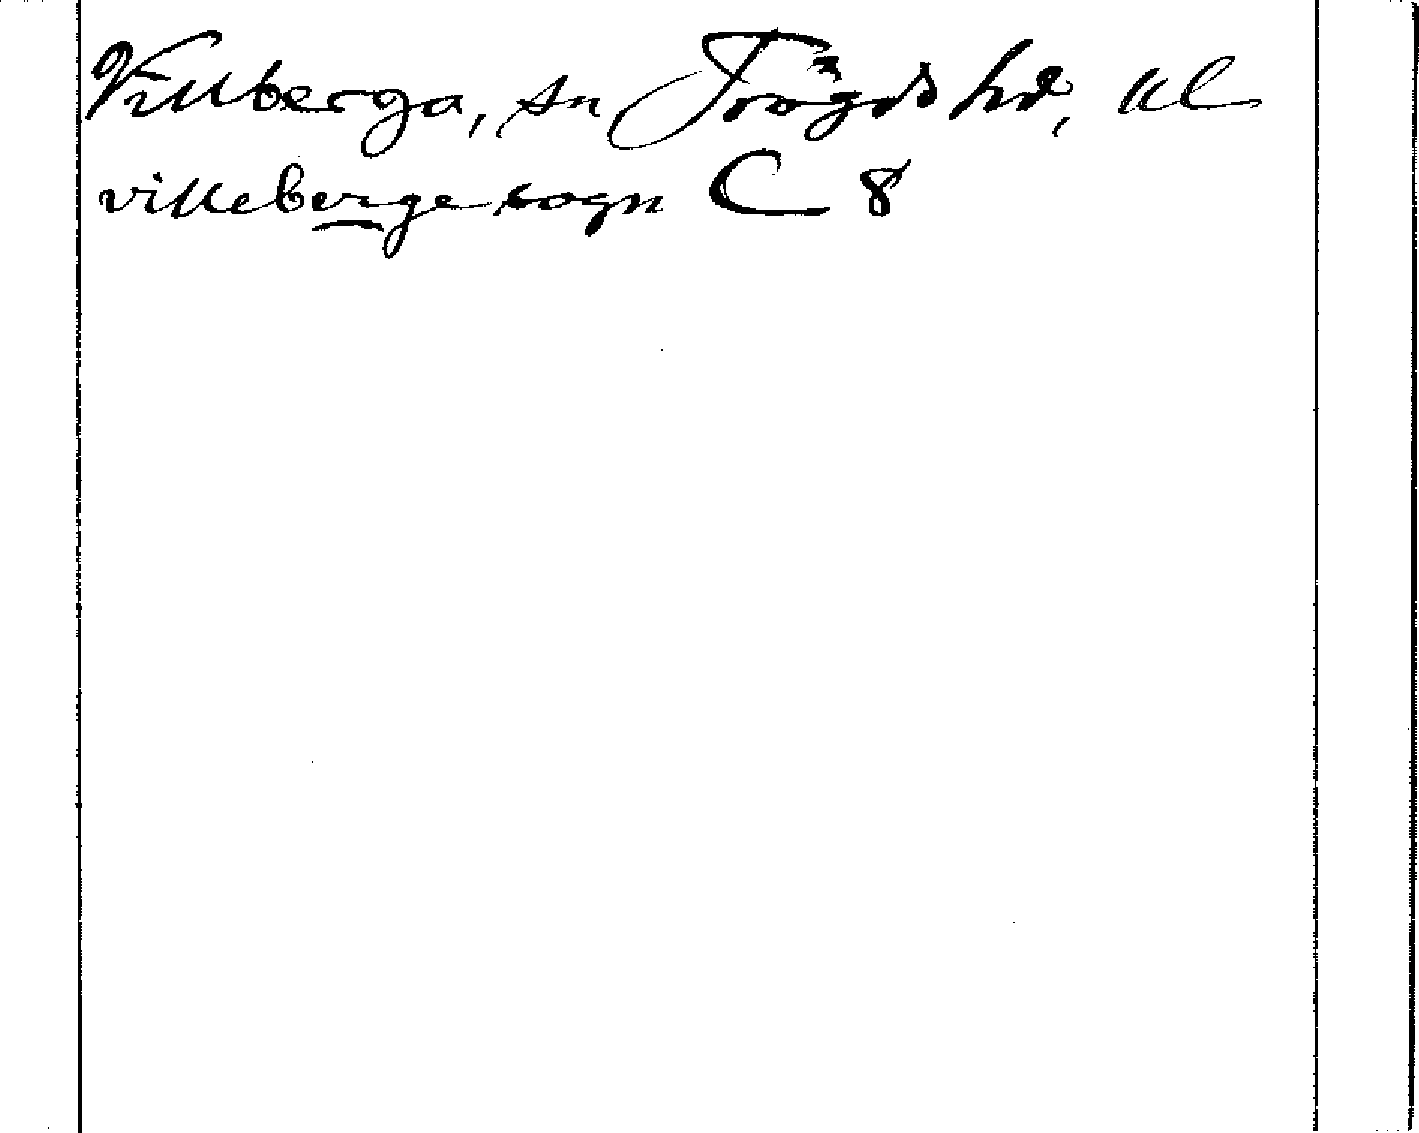 Villberga, sn Trögds hd, Ul
villeberge sogn C 8